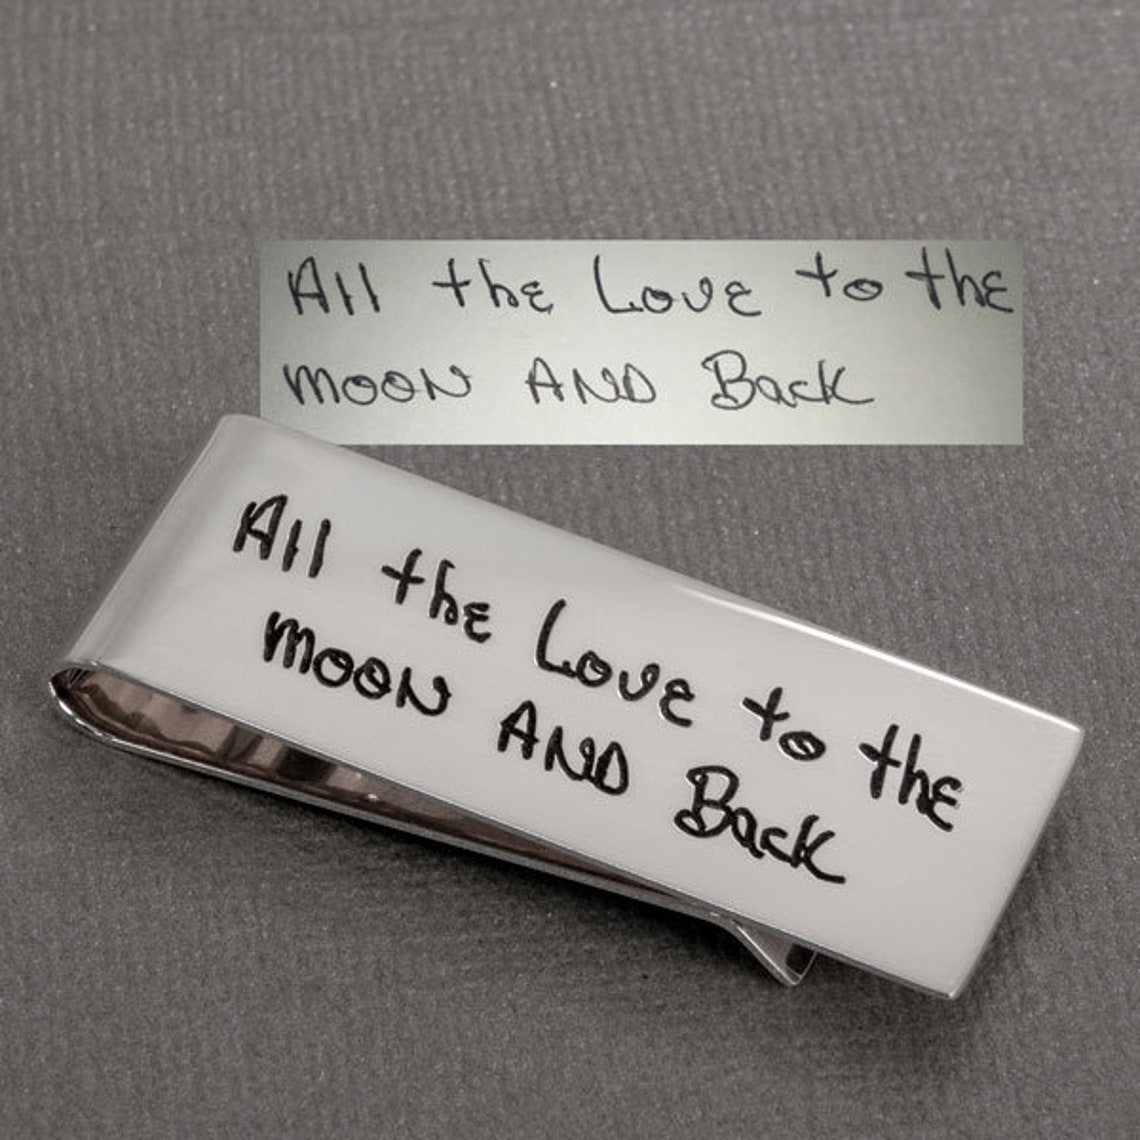 All the Love to the
MOON AND Back
All the Love to the
MOON AND Back